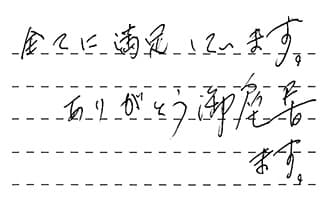 全てに満足しています。
ありがとう御座居
ます。